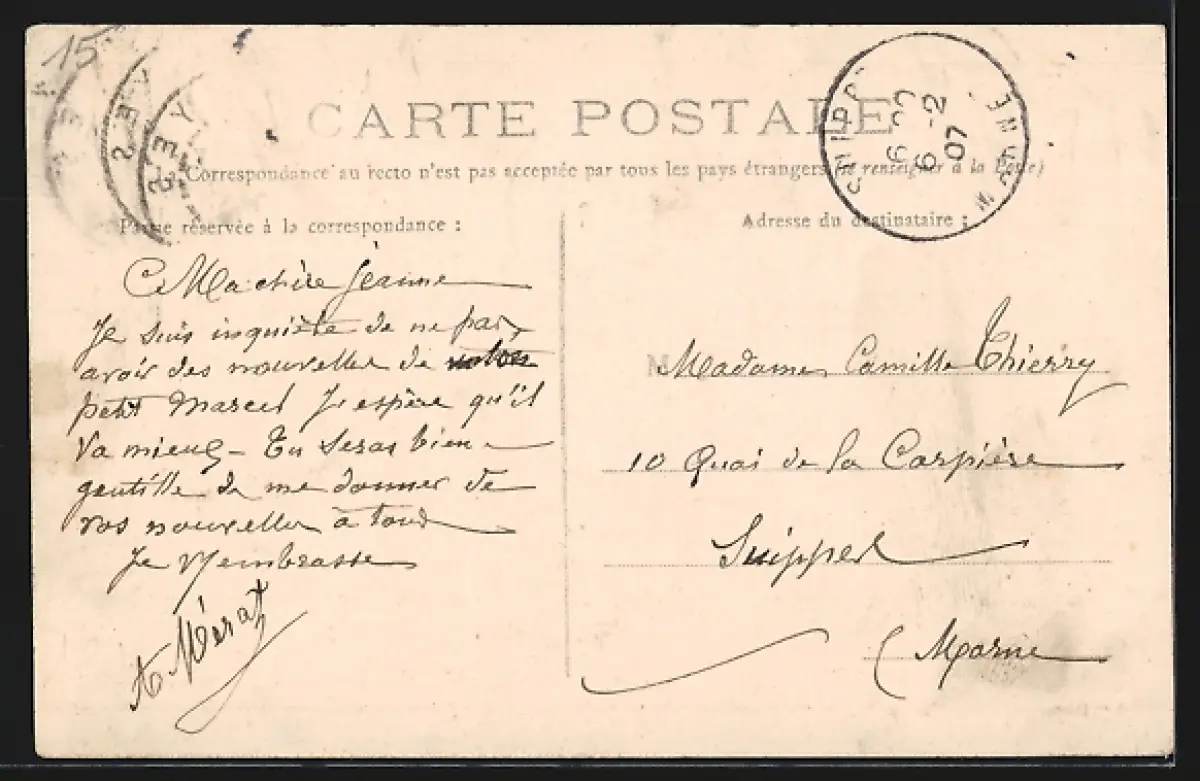 15
CARTE POSTALE
La Correspondance au recto n'est pas acceptée par tous les pays étrangers (se renseigner à la Poste)
Partie réservée à la correspondance :
Ma chère Jeanne
Je suis inquiète de ne pas
avoir des nouvelles de votre
petit Marcel J'espère qu'il
va mieux - Tu seras bien
gentille de me donner de
vos nouvelles à tous
Je vs embrasse
A Mérat
SUIPPES
MARNE
6-2
07
Adresse du destinataire :
Madame Camille Thierry
10 Quai de la Carpière
Suippes
(Marne